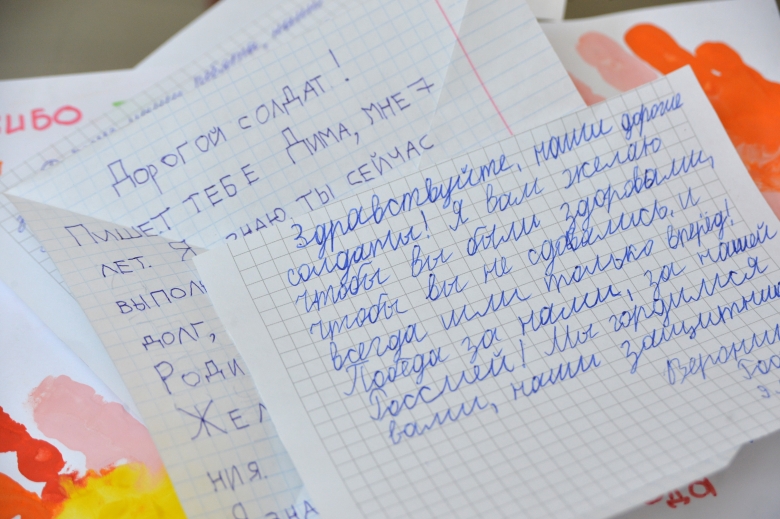 ИБО
Дорогой солдат!
Пишет тебе Дима, мне 7
лет. Я знаю, ты сейчас
выпол
долг,
Роди
Жел
ния.
Здравствуйте, наши дорогие
солдаты! Я вам желаю
чтобы вы были здоровыми,
чтобы вы не сдавались и
всегда шли только вперёд!
Победа за нами, за нашей
Россией! Мы гордимся
вами, наши защитники
Верони